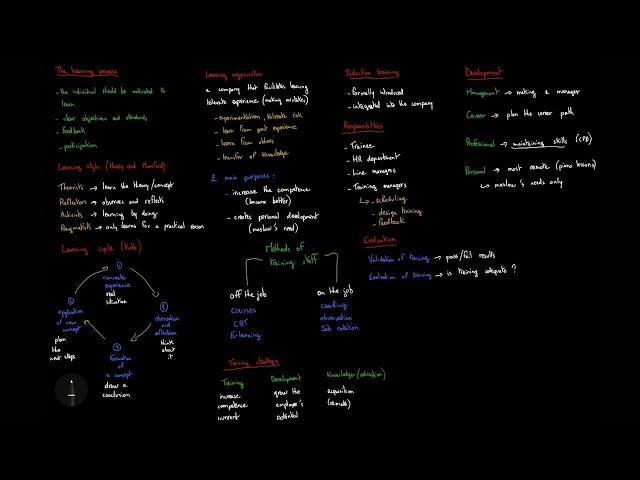 The learning process
- the individual should be motivated to
learn
- clear objectives and standards
- feedback
- participation
Learning style (Honey and Mumford)
Theorists → learn the theory/concept
Reflectors → observes and reflects
Activists → learning by doing
Pragmatists → only learns for a practical reason
Learning cycle (Kolb)
1
concrete
experience
real
situation
2
observation
and
reflection
think
about
it
3
formation
of
a concept
draw a
conclusion
application
of new
concept
plan
the
next steps
Learning organisation
a company that facilitates learning
tolerate experience (making mistakes)
- experimentation, tolerate risk
- learn from past experience
- learn from others
- transfer of knowledge
2 main purposes:
- increase the competence
(become better)
- creates personal development
(maslow's need)
Methods of
training staff
off the job
courses
CBT
E-learning
on the job
coaching
observation
Job rotation
Training strategy
Training
increase
competence
current
Development
grow the
employee's
potential
Knowledge (education)
acquisition
(remote)
Induction training
- formally introduced
- integrated into the company
Responsibilities
- Trainee
- HR department
- Line managers
- Training managers
↳ - scheduling
- design training
- feedback
Evaluation
Validation of training → pass/fail results
Evaluation of training → is training adequate ?
Development
Management → making a manager
Career → plan the career path
Professional → maintaining skills (CPD)
Personal → most remote (piano lessons)
↳ maslow's needs only